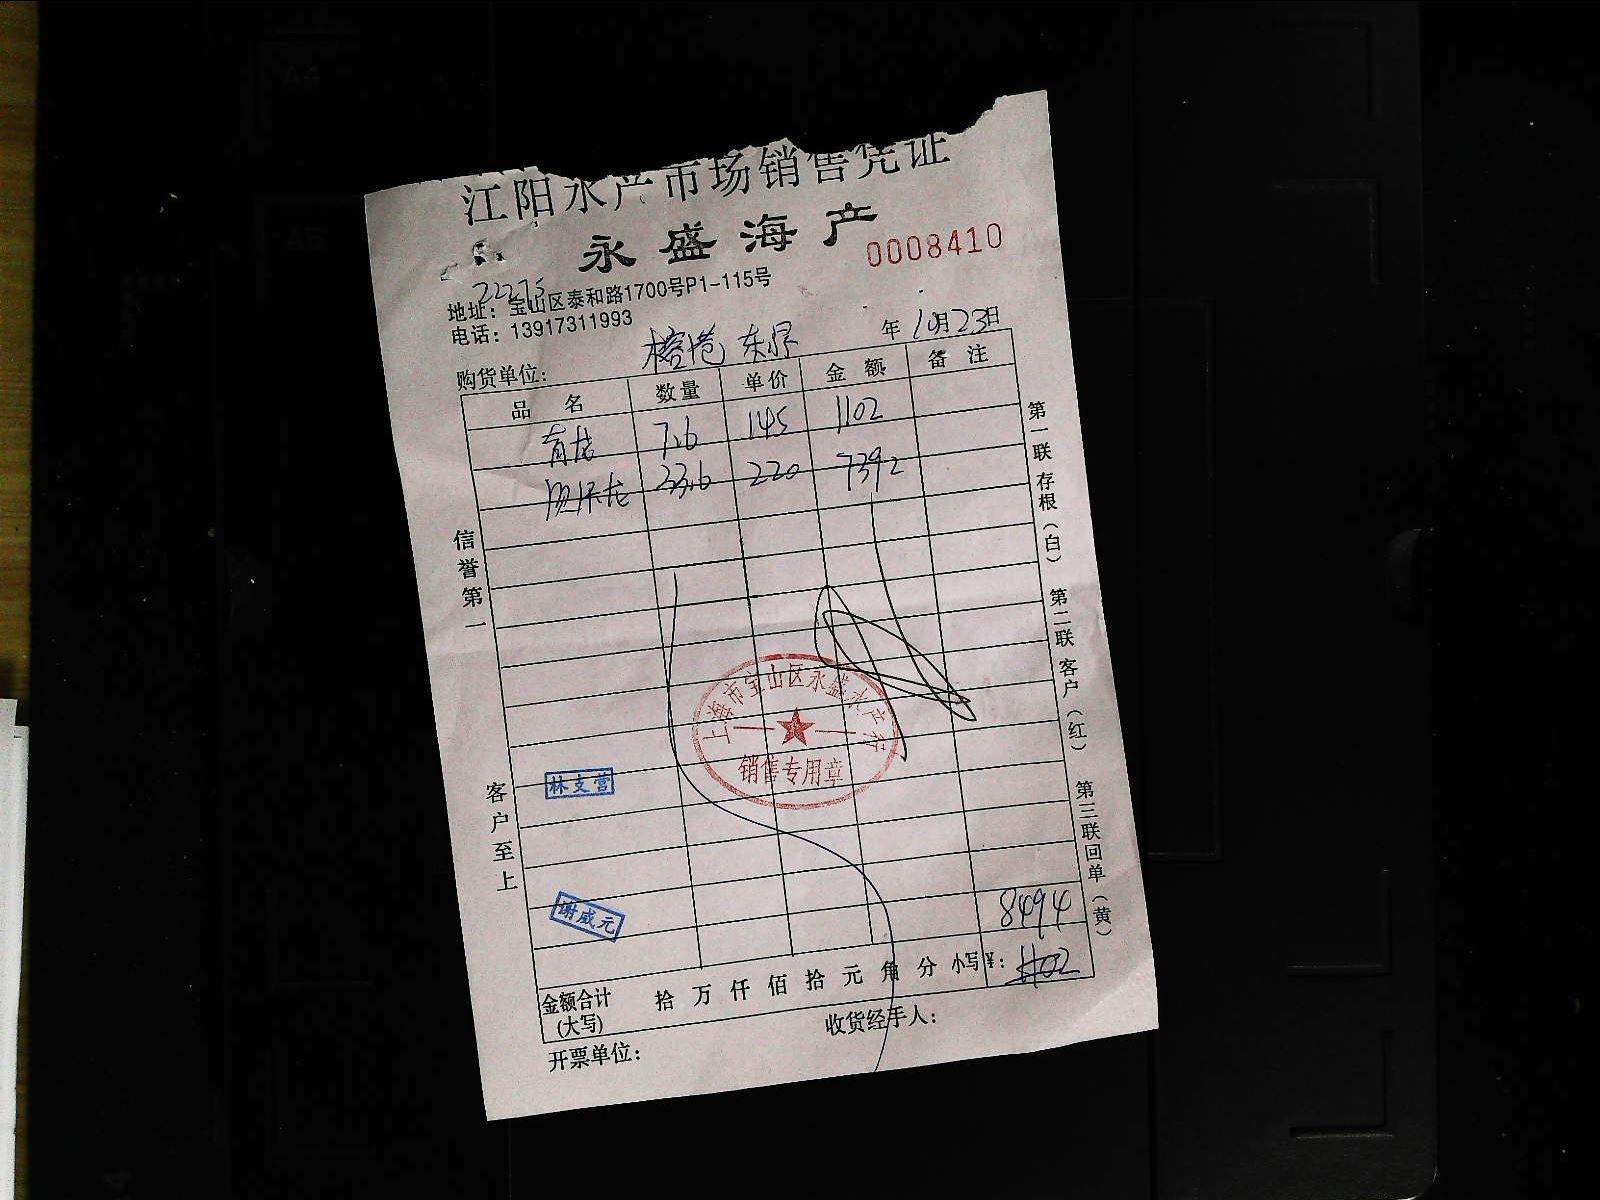 江阳水产市场销售凭证
永盛海产
0008410
22275
地址：宝山区泰和路1700号P1-115号
电话：13917311993
年 10月23日
购货单位：
品 名 数量 单价 金 额 备 注
青龙 7.6 145 1102
33.6 220 7392
信誉第一
客户至上
第一联存根（白）
第二联客户（红）
第三联回单（黄）
上海市宝山区永盛水产行
销售专用章
林支营
谢咸元
8494
金额合计（大写） 拾 万 仟 佰 拾 元 角 分 小写¥：
开票单位： 收货经手人：